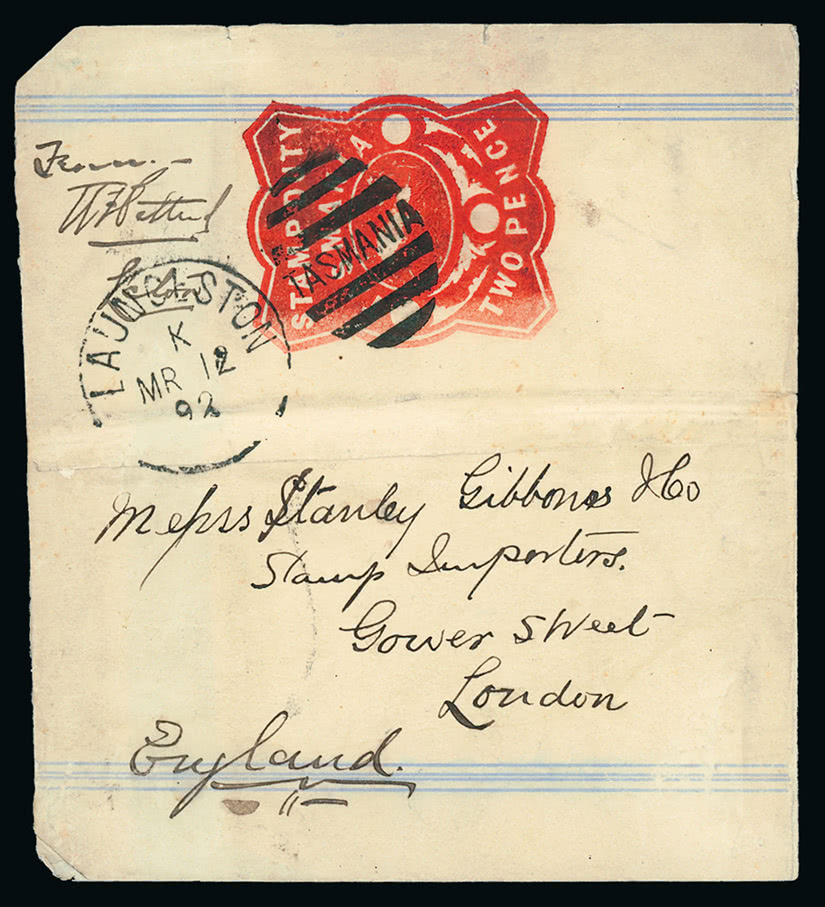 STAMP DUTY
TWO PENCE
TASMANIA
From.—
LAUNCESTON
K
MR 12
92
Messrs Stanley Gibbons & Co
Stamp Importers.
Gower Street
London
England.